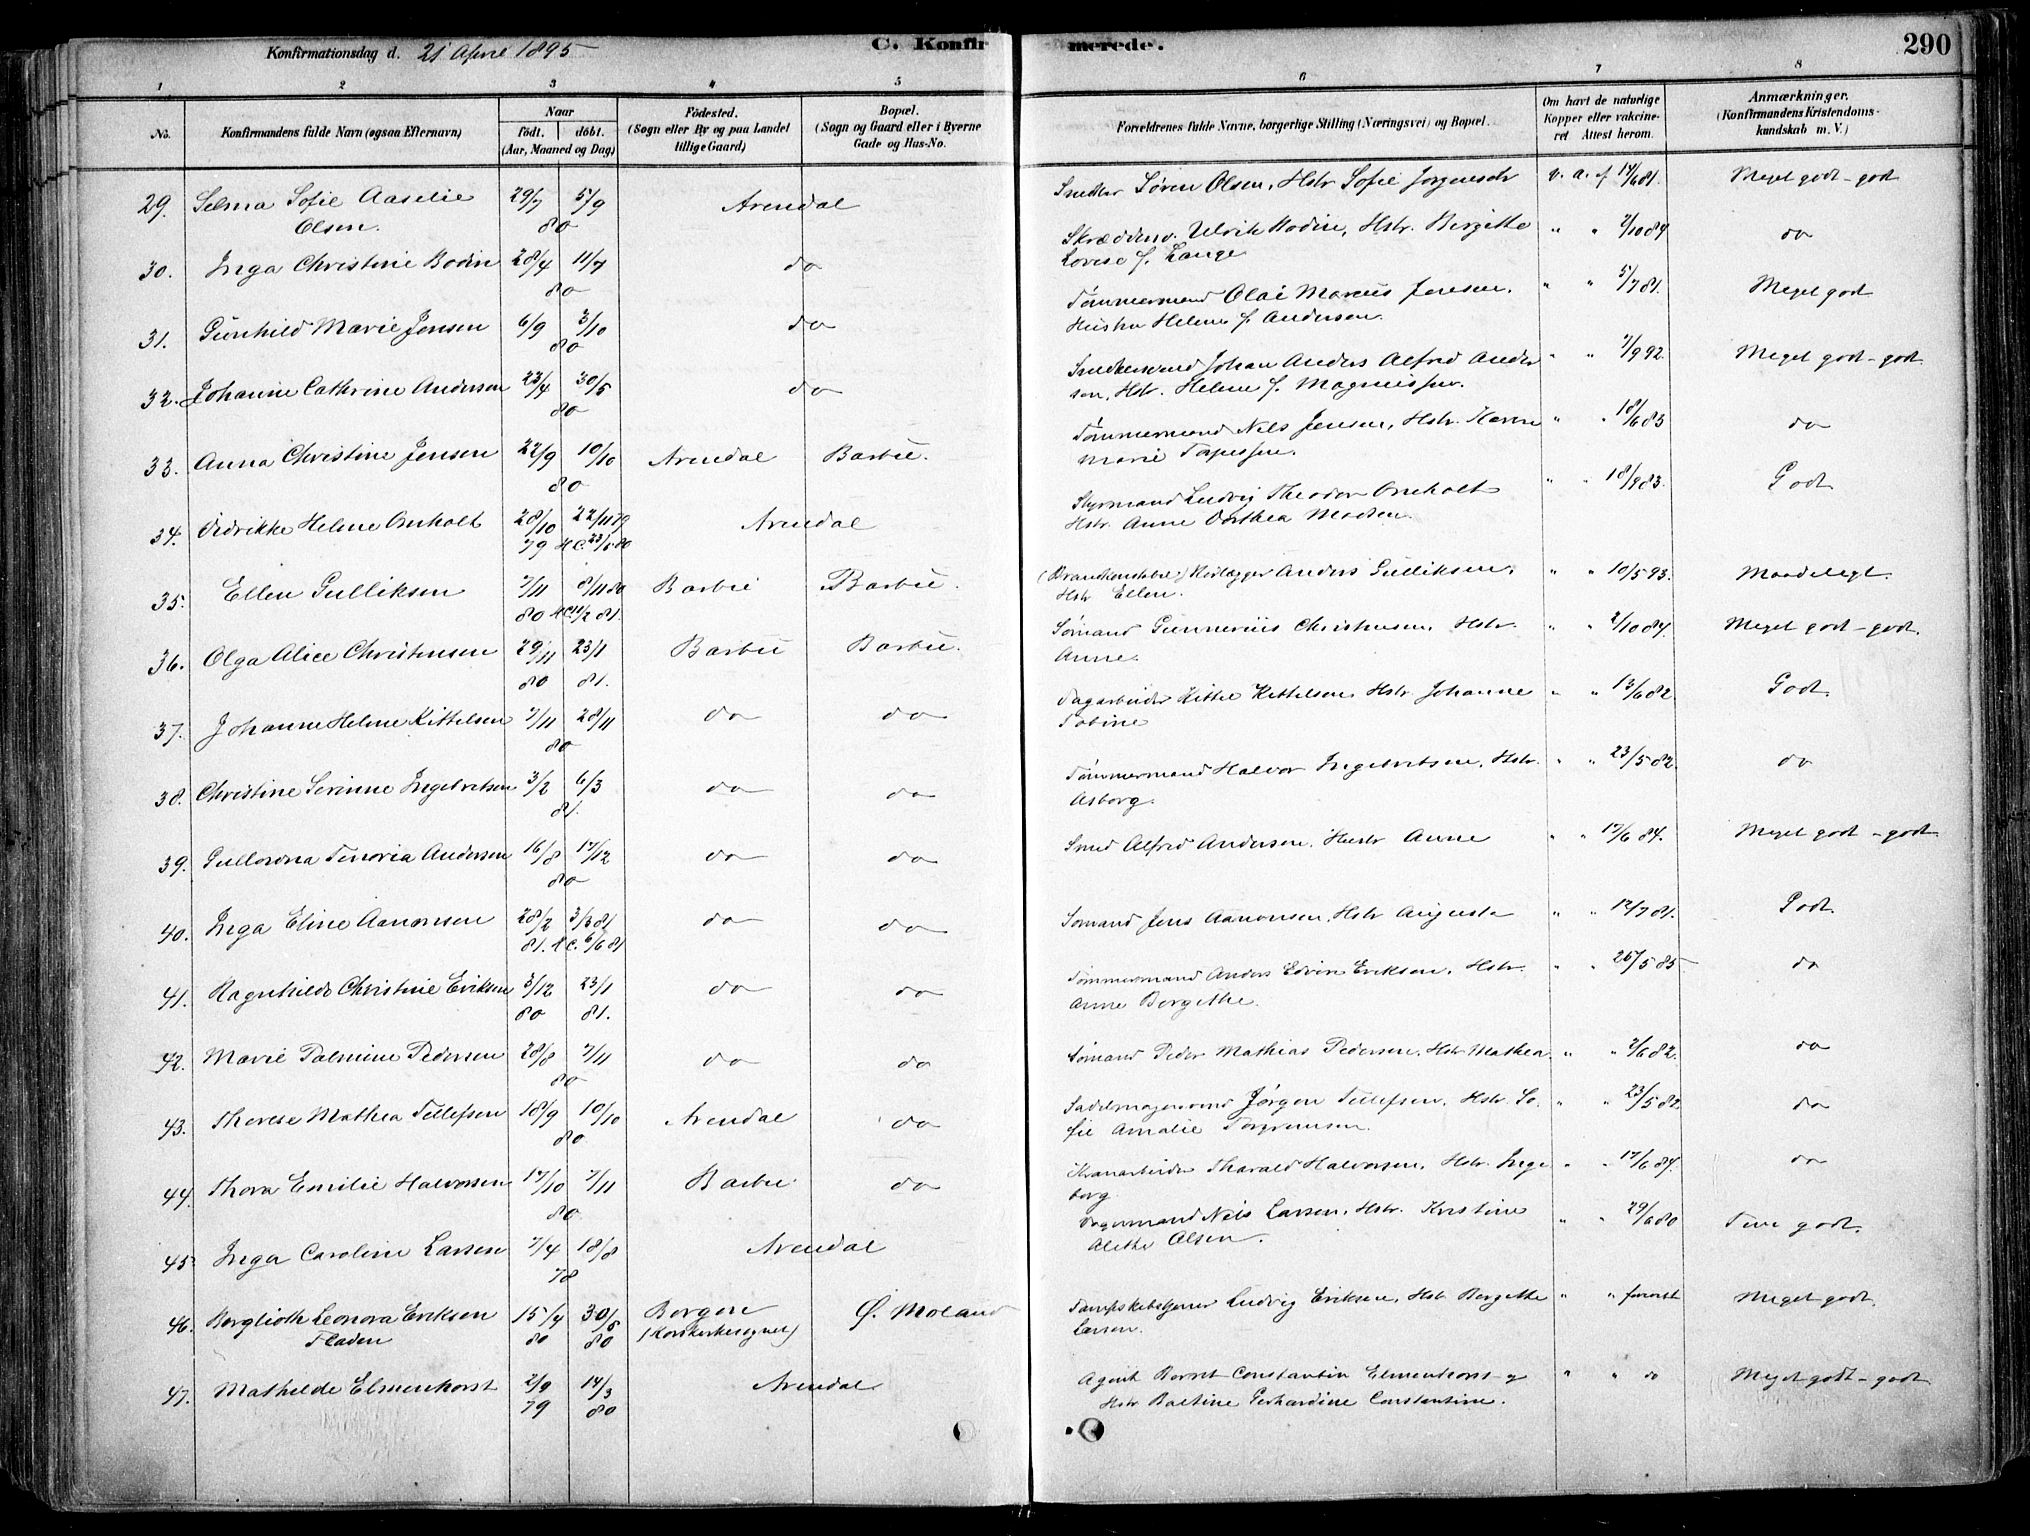 Konfirmationsdag d. 21 April 1895
C. Konfirmerede.
290
1 2 3 4 5 6 7 8
No. Konfirmandens fulde Navn (ogsaa Efternavn) Naar født. døbt. (Aar, Maaned og Dag) Fødested. (Sogn eller By og paa Landet tillige Gaard) Bopæl. (Sogn og Gaard eller i Byerne Gade og Hus-No. Forældrenes fulde Navne, borgerlige Stilling (Næringsvei) og Bopæl. Om havt de naturlige Kopper eller vakcineret Attest herom. Anmærkninger. (Konfirmandens Kristendomskundskab m. V.)
29. Selma Sofie Aaselie Olsen. 29/7 5/9 80 Arendal Snedker Søren Olsen, Hstr Sofie Jørgensdr v. a. af 14/6 81. Meget godt - godt
30. Inga Christine Bodin 28/4 11/7 80 do Ulrik Bodin, Hstr. Bergitte Lovise f. Lange " " 2/10 84 do
31. Gunhild Marie Jensen 6/9 3/10 80 do Tømmermand Olai Marius Jensen, Hustru Helene f. Andersen. " " 5/7 81. Meget godt
32. Johanne Cathrine Andersen 23/4 30/5 80 do Johan Anders Alfred Andersen, Hstr. Helene f. " " 7/9 92. Meget godt - godt
33. Anna Christine Jensen 22/9 10/10 80 Arendal Barbu. Tømmermand Nels Jensen, Hstr. Karen Marie " " 18/6 83 do
34. Didrikke Helene Omholt 28/10 79 22/11 79 H.C. 23/5 80 Arendal Styrmand Ludvig Theodor Omholt Hstr. Anne Dorthea Madsen. " " 18/9 83. Godt
35. Ellen Gulliksen 7/11 80 8/11 80 Barbu Barbu. Anders Gulliksen, Hstr Ellen. " " 10/5 93. Maadeligt.
36. Olga Alice Christensen 29/11 80 23/1 81. Barbu Barbu. Sømand Gunnerius Christensen, Hstr. Anne. " " 2/10 84. Meget godt - godt.
37. Johanne Helene Kittelsen 7/11 28/11 80 do do Dagarbeider Kittel Kittelsen, Hstr Johanne Tobine " " 13/6 82 Godt.
38. Christine Serinne Ingebretsen 3/2 6/3 81. do do Tømmermand Halvor Ingebretsen, Hstr. Asborg. " " 23/5 82. do
39. Gullovna Tinoria Andersen 16/8 17/12 80 do do Smed Alfred Andersen, Hustr Anne " " 17/6 84. Meget godt - godt.
40. Inga Eline Aanonsen 28/2 81. 3/3 81 H.C. 6/6 81 do do Sømand Jens Aanonsen, Hstr Augusta " " 12/7 81. Godt.
41. Ragnhilde Christine Eriksen 3/12 80 23/1 81. do do Tømmermand Anders Edvin Eriksen, Hstr. Anne Bergithe. " " 26/5 85 do
42. Marie Palmine Pedersen 28/8 7/11 80 do do Sømand Peder Mathias Pedersen, Hstr Mathea " " 2/6 82. do
43. Therese Mathea Tellefsen 18/9 10/10 80 Arendal do Sadelmagersvend Jørgen Tellefsen, Hstr. Sofie Amalie " " 23/5 82 do
44. Thora Emilie Halvorsen 17/10 7/11 80. Barbu do Tharald Halvorsen, Hstr. Ingeborg " " 17/6 84. do
45. Inga Caroline Larsen 7/4 18/8 78 Arendal Nels Larsen, Hstr. Kristine Alethe Olsen. " " 29/6 80 Temm. godt.
46. Borglioth Leonora Eriksen Fladen 15/4 80 30/5 80 Bergen (Korskirkesognet) Ø. Moland Ludvig Eriksen, Hstr Bergethe Larsen. " " forevist Meget godt.
47. Mathilde Elmenhorst 2/9 79 14/3 80 Arendal. Agent Bernt Constantin Elmenhorst og Hstr Baltine Gerhardine Constantine. " " do Meget godt - godt